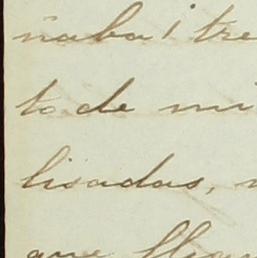 naba i tre
to de mi
lisadas,
que